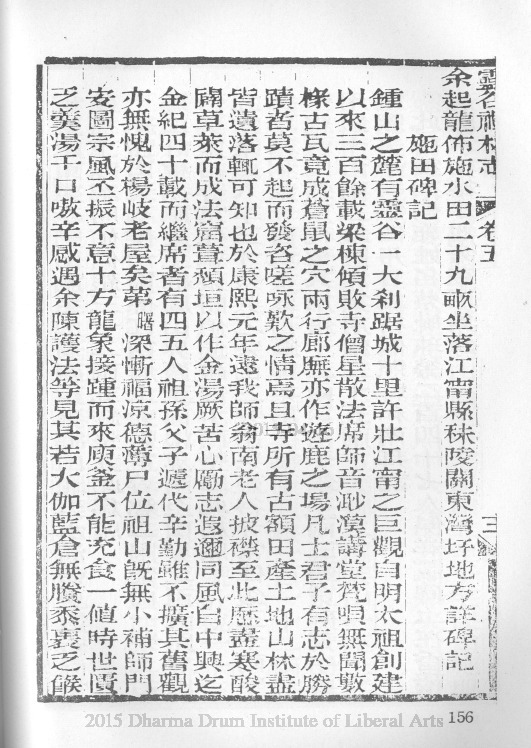 靈谷禪林志 卷五 三
余起龍佈施水田二十九畝坐落江甯縣秣陵關東灣圩地方詳碑記
施田碑記
鍾山之麓有靈谷一大刹踞城十里許壯江甯之巨觀自明太祖創建
以來三百餘載梁棟傾敗寺僧星散法席師音渺漠講堂梵唄無聞數
椽古瓦竟成蒼鼠之穴兩行廊廡亦作遊鹿之場凡士君子有志於勝
蹟者莫不起而發咨嗟咏歎之情焉且寺所有古額田產土地山林盡
皆遺落輒可知也於康熙元年遠我師翁南老人披襟至此歷盡寒酸
闢草萊而成法窟葺頹垣以作金湯厥苦心勵志遐邇同風自中興迄
金紀四十載而繼席者有四五人祖孫父子遞代辛勤雖不擴其舊觀
亦無愧於楊岐老屋矣第曙深慚福涼德薄尸位祖山旣無小補師門
安圖宗風丕振不意十方龍象接踵而來庾釜不能充食一値時世匱
乏羹湯千口嗷辛感遇余陳護法等見其若大伽藍倉無賸黍裹乏餱
2015 Dharma Drum Institute of Liberal Arts 156